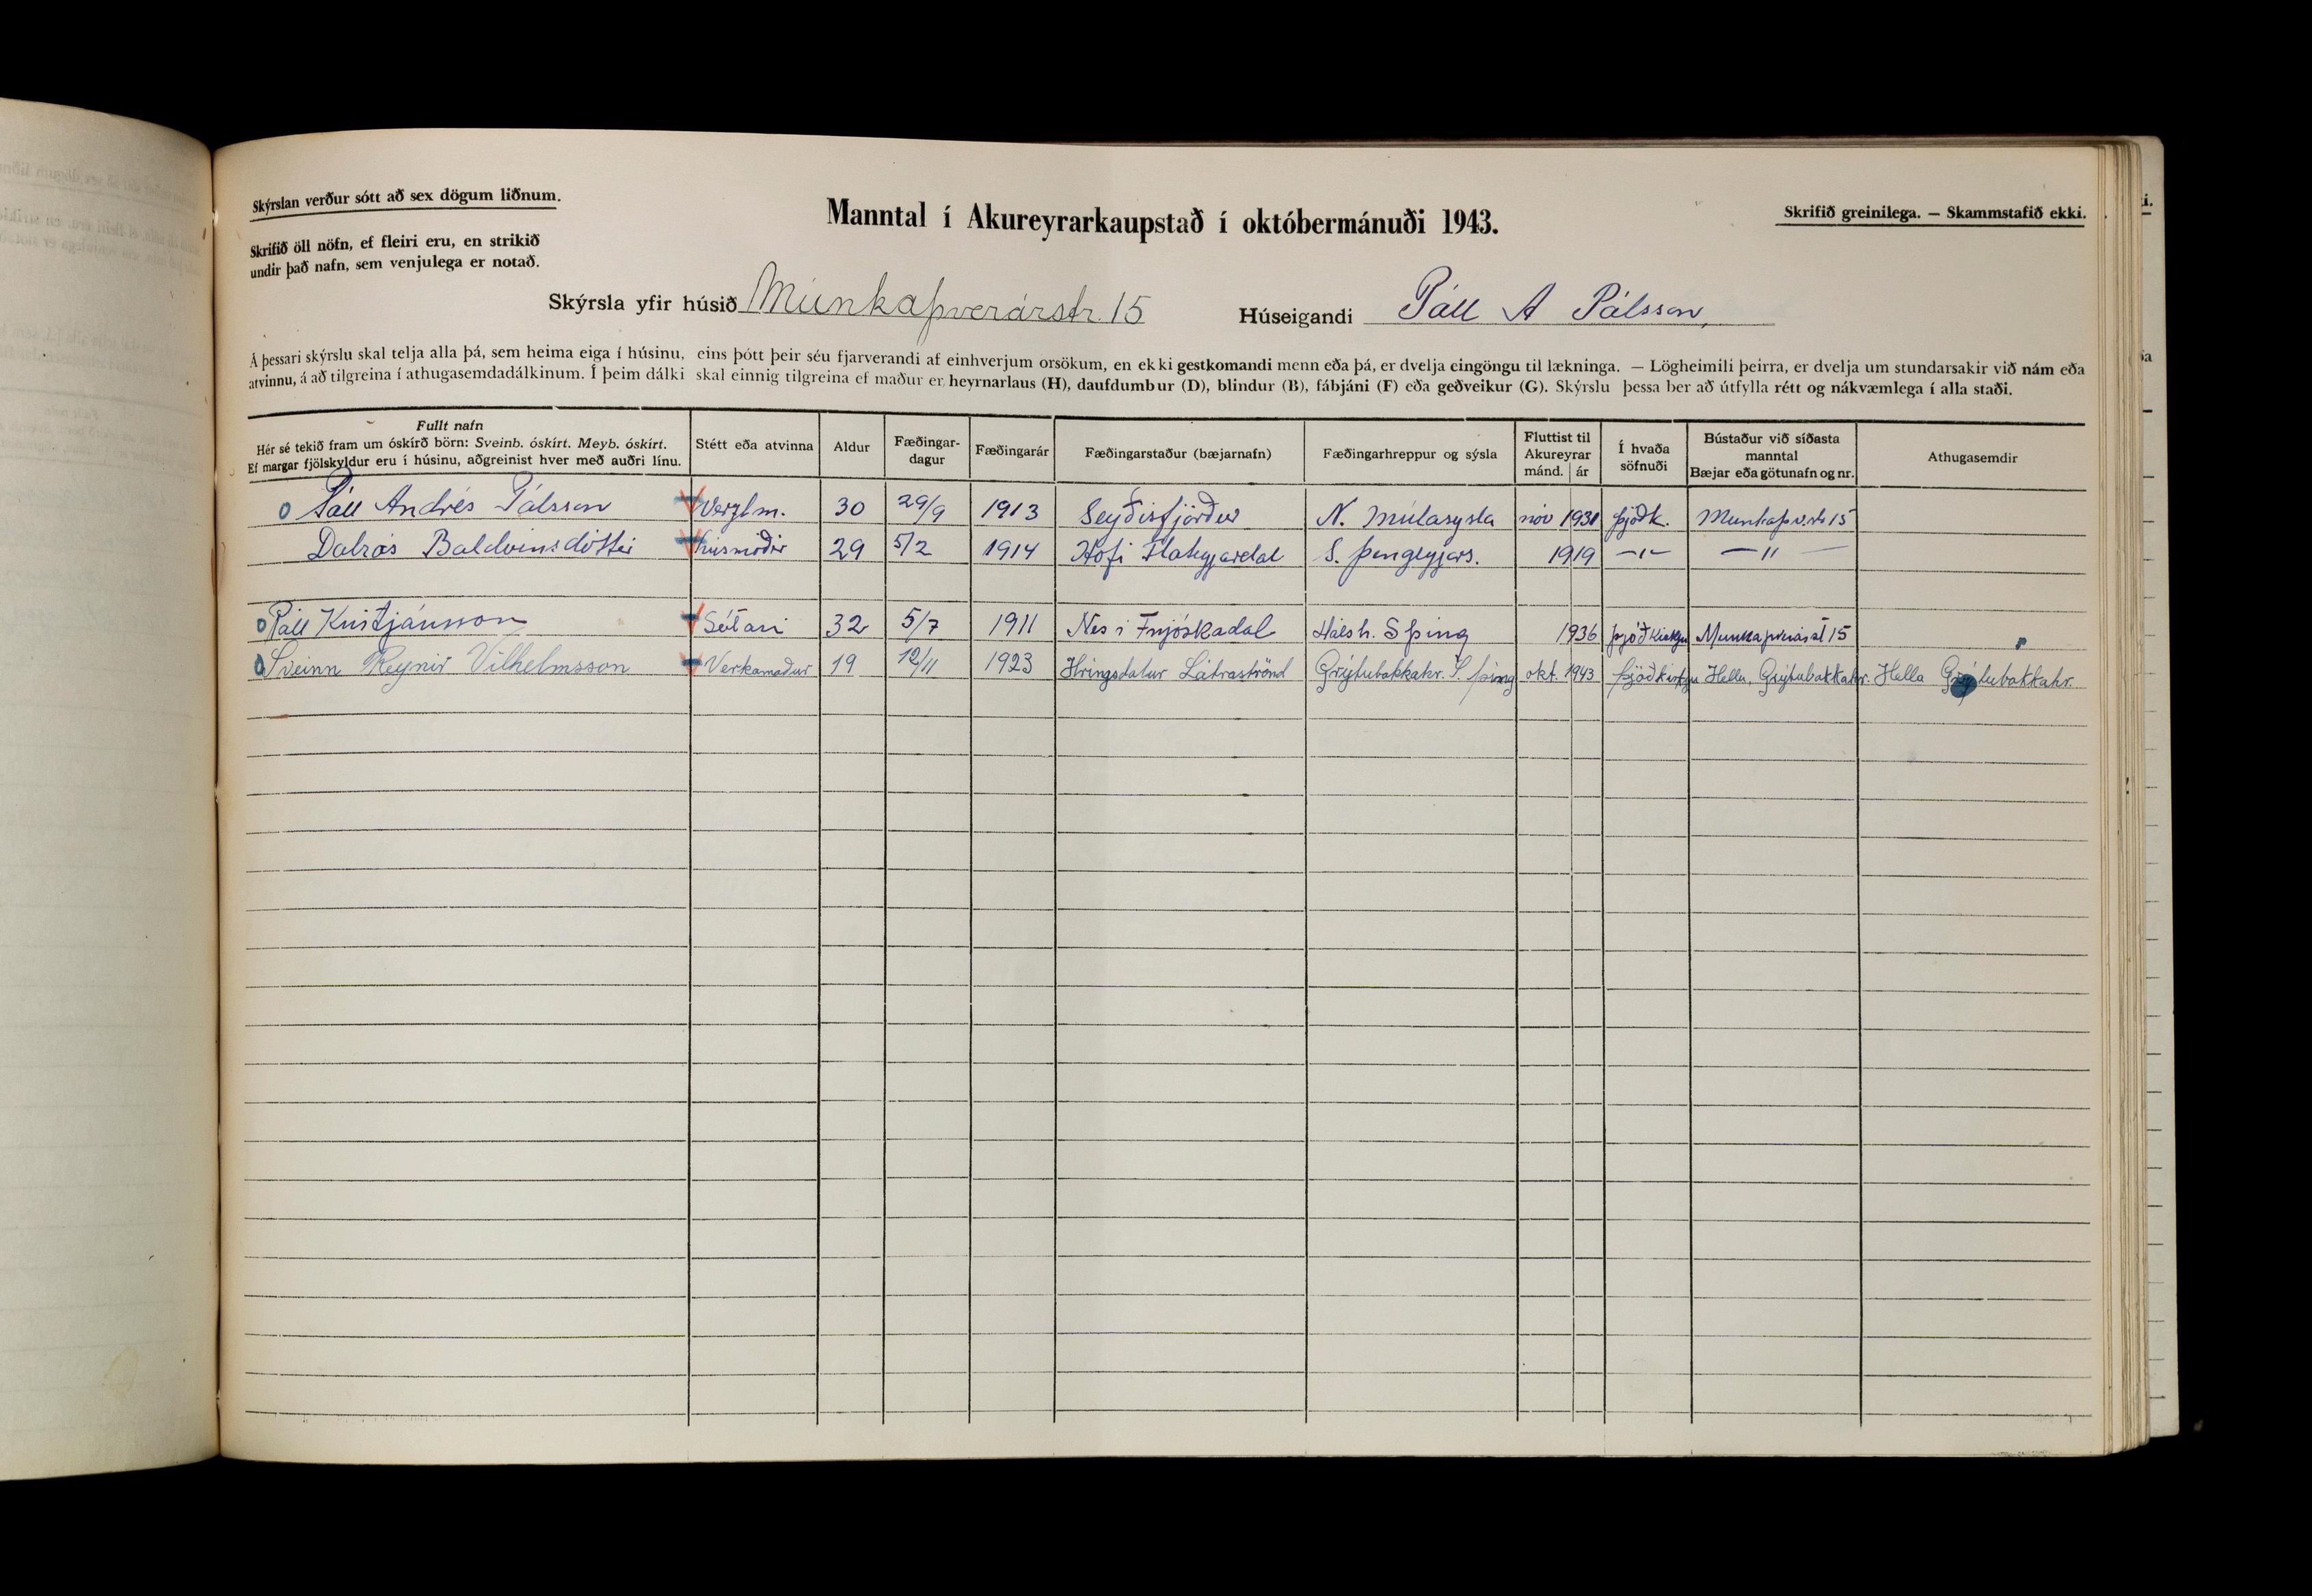 Skýrslan verður sótt að sex dögum liðnum.
Manntal í Akureyrarkaupstað í októbermánuði 1943.
Skrifið greinilega. — Skammstafið ekki.
Skrifið öll nöfn, ef fleiri eru, en strikið
undir það nafn, sem venjulega er notað.
Skýrsla yfir húsið Munkaþverárstr. 15 Húseigandi Páll A Pálsson,
Á þessari skýrslu skal telja alla þá, sem heima eiga í húsinu, eins þótt þeir séu fjarverandi af einhverjum orsökum, en ekki gestkomandi menn eða þá, er dvelja eingöngu til lækninga. — Lögheimili þeirra, er dvelja um stundarsakir við nám eða
atvinnu, á að tilgreina í athugasemdadálkinum. Í þeim dálki skal einnig tilgreina ef maður er heyrnarlaus (H), daufdumbur (D), blindur (B), fábjáni (F) eða geðveikur (G). Skýrslu þessa ber að útfylla rétt og nákvæmlega í alla staði.
Fullt nafn
Hér sé tekið fram um óskírð börn: Sveinb. óskírt. Meyb. óskírt.
Ef margar fjölskyldur eru í húsinu, aðgreinist hver með auðri línu.
Stétt eða atvinna
Aldur
Fæðingar-
dagur
Fæðingarár
Fæðingarstaður (bæjarnafn)
Fæðingarhreppur og sýsla
Fluttist til
Akureyrar
mánd. ár
Í hvaða
söfnuði
Bústaður við síðasta
manntal
Bæjar eða götunafn og nr.
Athugasemdir
Páll Andrés Pálsson Verzlm. 30 29/9 1913 Seyðisfjörður N. Múlasysla nóv 1931 þjóðk. Munkaþv.str 15
Dalrós Baldvinsdóttir húsmóðir 29 5/2 1914 Hófi Flateyjardal S. þingeyjars. 1919 —"— —"—
Páll Kristjánsson 32 5/7 1911 Nes i Fnjóskadal Hálsh. S þing 1936 þjóðkirkju Munkaþverárst 15 "
Sveinn Reynir Vilhelmsson Verkamaður 19 12/11 1923 Hringsdalur Látraströnd Grýtubakkahr. S. þing okt. 1943 þjóðkirkju Hella, Grýtubakkahr. Hella Grýtubakkahr.